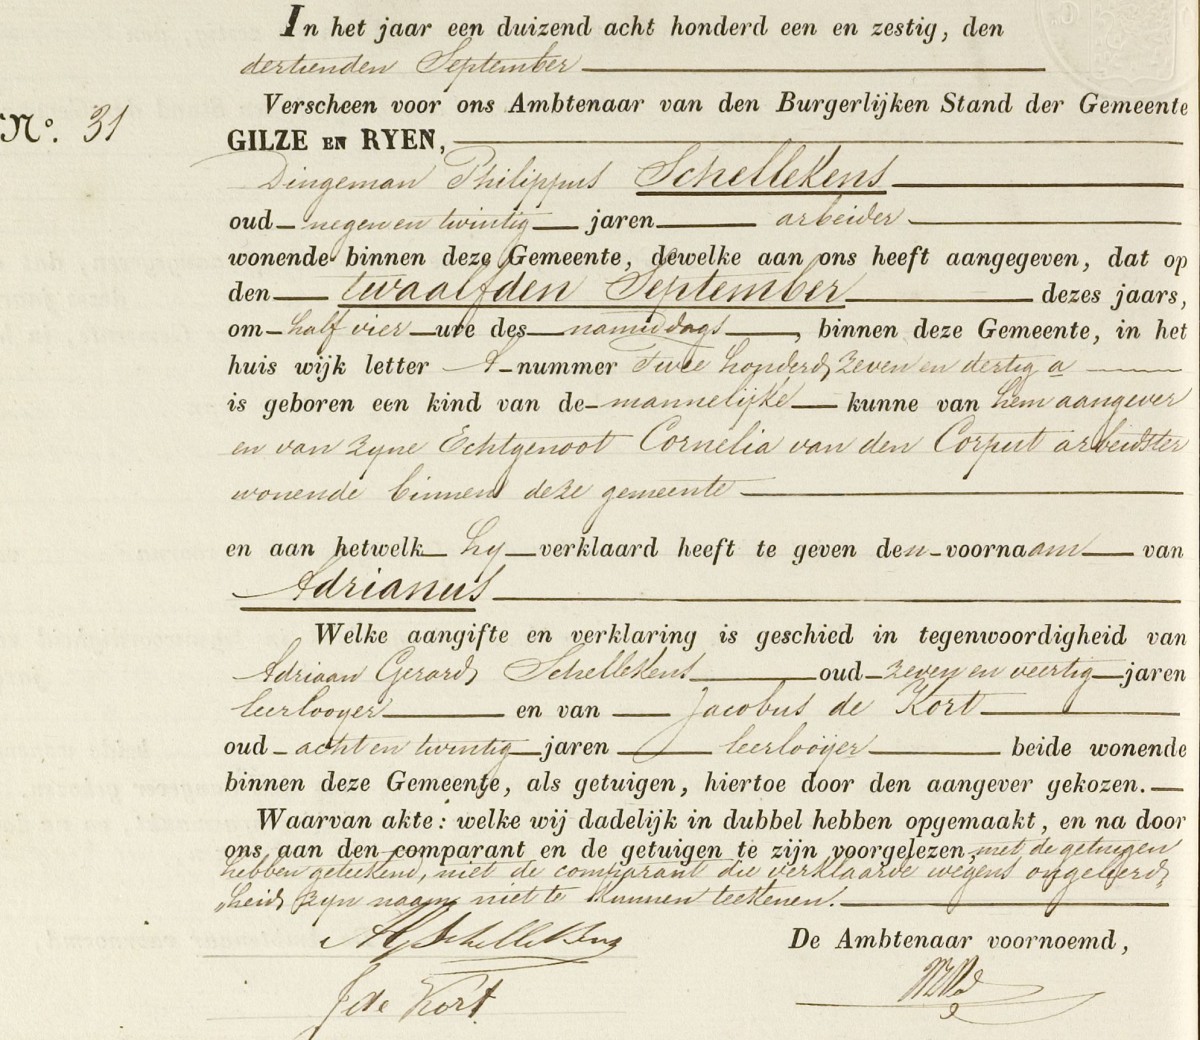 In het jaar een duizend acht honderd een en zestig, den
dertienden September
Verscheen voor ons Ambtenaar van den Burgerlijken Stand der Gemeente
No. 31
GILZE EN RYEN,
Dingeman Philippus Schellekens
oud negen en twintig jaren arbeider
wonende binnen deze Gemeente, dewelke aan ons heeft aangegeven, dat op
den twaalfden September dezes jaars,
om half vier ure des namiddags, binnen deze Gemeente, in het
huis wijk letter A nummer Twee honderd zeven en dertig a
is geboren een kind van de mannelijke kunne van hem aangever
en van zyne Echtgenoot Cornelia van den Corput arbeidster
wonende binnen deze gemeente
en aan hetwelk hy verklaard heeft te geven den voornaam van
Adrianus
Welke aangifte en verklaring is geschied in tegenwoordigheid van
Adriaan Gerard Schellekens oud zeven en veertig jaren
leerlooyer en van Jacobus de Kort
oud acht en twintig jaren leerlooijer beide wonende
binnen deze Gemeente, als getuigen, hiertoe door den aangever gekozen.
Waarvan akte: welke wij dadelijk in dubbel hebben opgemaakt, en na door
ons aan den comparant en de getuigen te zijn voorgelezen, met de getuigen
hebben geteekend, niet de comparant die verklaarde wegens ongeleerd
heid zyn naam niet te kunnen teekenen.
AG Schellekens
De Ambtenaar voornoemd,
J de Kort